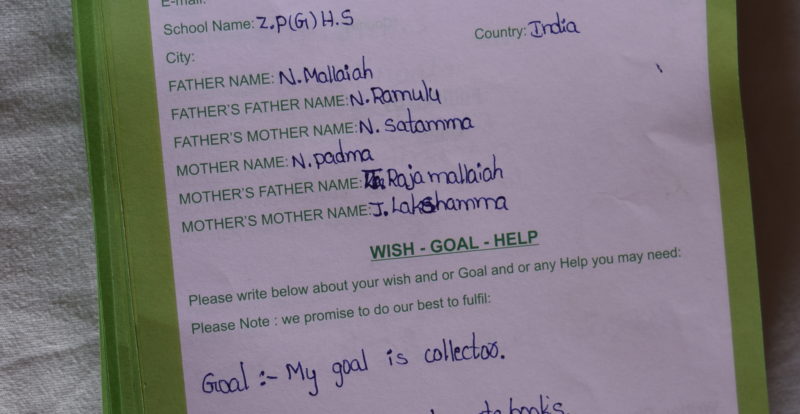 E-mail:
School Name: Z.P(G) H.S Country: India
City:
FATHER NAME: N. Mallaiah
FATHER'S FATHER NAME: N. Ramulu
FATHER'S MOTHER NAME: N. Satamma
MOTHER NAME: N. padma
MOTHER'S FATHER NAME: Rajamallaiah
MOTHER'S MOTHER NAME: J. Lakshamma
WISH - GOAL - HELP
Please write below about your wish and or Goal and or any Help you may need:
Please Note : we promise to do our best to fulfil:
Goal :- My goal is collector.